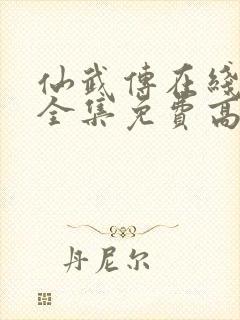 仙武傳在綫
全集免費高
丹尼尔